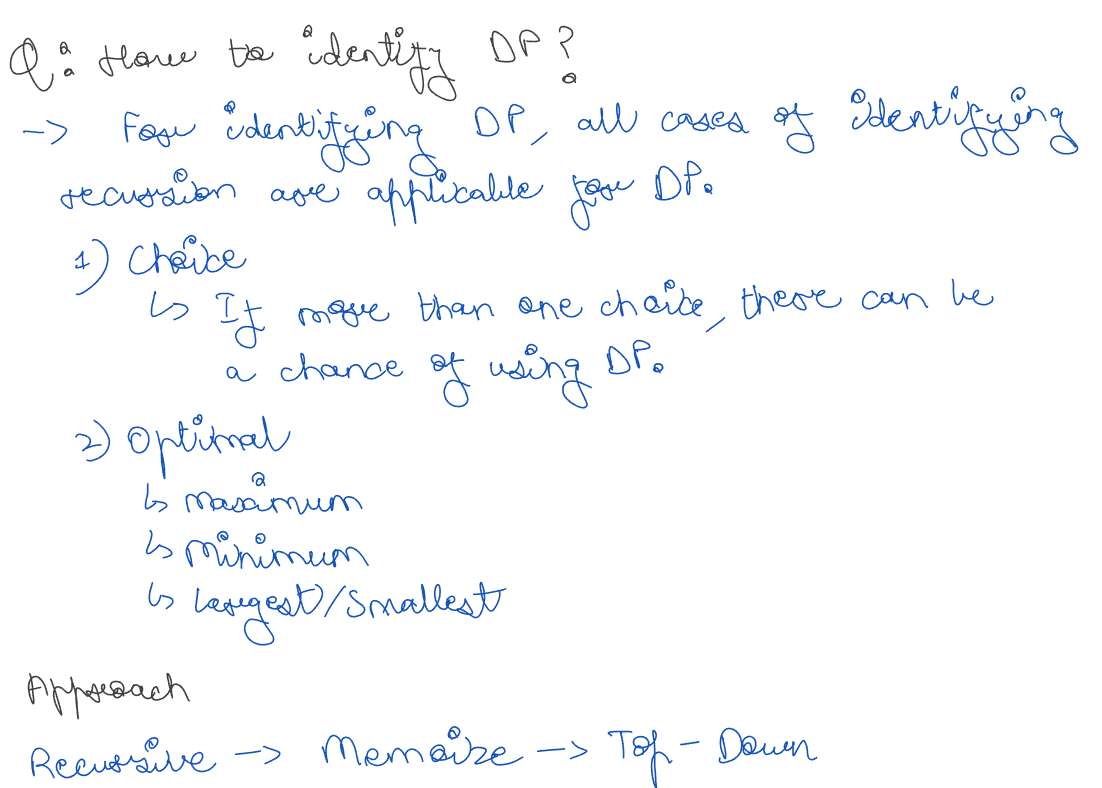 Q: How to identify DP?
-> For identifying DP, all cases of identifying
recursion are applicable for DP.
1) Choice
↳ If more than one choice, there can be
a chance of using DP.
2) Optimal
↳ Maximum
↳ Minimum
↳ Largest/Smallest
Approach
Recursive -> Memoize -> Top-Down